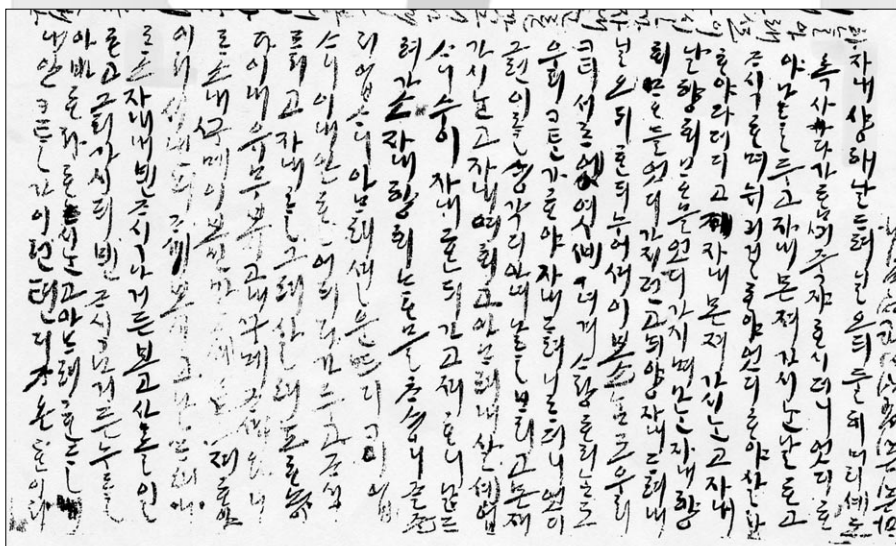 자내 샹해 날ᄃᆞ려 닐오ᄃᆡ 둘히 머리 셰도
록 사다가 ᄒᆞᆷᄭᅴ 죽쟈 ᄒᆞ시더니 엇디ᄒᆞ
야 나ᄅᆞᆯ 두고 자내 몬져 가시ᄂᆞᆫ 날ᄒᆞ고
ᄌᆞ식ᄒᆞ며 뉘 긔걸ᄒᆞ야 엇디ᄒᆞ야 살라
ᄒᆞ야 다 더디고 자내 몬져 가시ᄂᆞᆫ고 자내
날 향ᄒᆡ ᄆᆞᄋᆞᄆᆞᆯ 엇디 가지며 나ᄂᆞᆫ 자내 향
ᄒᆡ ᄆᆞᄋᆞᄆᆞᆯ 엇디 가지던고 ᄆᆡ양 자내ᄃᆞ려 내
닐오ᄃᆡ ᄒᆞᆫᄃᆡ 누어셔 이보소 ᄂᆞᆷ도 우리
ᄀᆞ티 서ᄅᆞ 에엿ᄲᅵ 녀겨 ᄉᆞ랑ᄒᆞ리 ᄂᆞᆷ도
우리 ᄀᆞᄐᆞᆫ가 ᄒᆞ야 자내ᄃᆞ려 니ᄅᆞ더니 엇디
그런 이ᄅᆞᆯ ᄉᆡᆼ각디 아녀 나ᄅᆞᆯ ᄇᆞ리고 몬져
가시ᄂᆞᆫ고 자내 여ᄒᆡ고 아ᄆᆞ려 내 살 셰 업
ᄉᆞ니 수이 자내 ᄒᆞᆫᄃᆡ 가고져 ᄒᆞ니 날 ᄃᆞ
려가소 자내 향ᄒᆡ ᄆᆞᄋᆞᄆᆞᆯ ᄎᆞᄉᆡᆼ 니ᄌᆞᆯ 줄
리 업ᄉᆞ니 아ᄆᆞ려 셜운 ᄠᅳ디 ᄀᆞ이 업
ᄉᆞ니 이 내 안ᄒᆞᆫ 어ᄃᆡ다가 두고 ᄌᆞ식
ᄃᆞ리고 자내ᄅᆞᆯ 그려 살려뇨 ᄒᆞ노
이다 이 내 유무 보시고 내 ᄭᅮ메 ᄌᆞ셰 와 니
ᄅᆞ소 내 ᄭᅮ메 이 보신 말 ᄌᆞ셰 듣고져 ᄒᆞ야
이리 서년뇌 ᄌᆞ셰 보시고 날ᄃᆞ려 니
ᄅᆞ소 자내 내 ᄇᆡᆫ ᄌᆞ식 나거든 보고 사ᄅᆞᆯ 일
ᄒᆞ고 그리 가시ᄃᆡ ᄇᆡᆫ ᄌᆞ식 나거든 누ᄅᆞᆯ
아바 ᄒᆞ라 ᄒᆞ시ᄂᆞᆫ고 아ᄆᆞ려 ᄒᆞᆫᄃᆞᆯ
내 안 ᄀᆞᄐᆞᆯ가 이런 텬디 ᄌᆞ온ᄒᆞᆫ 이리